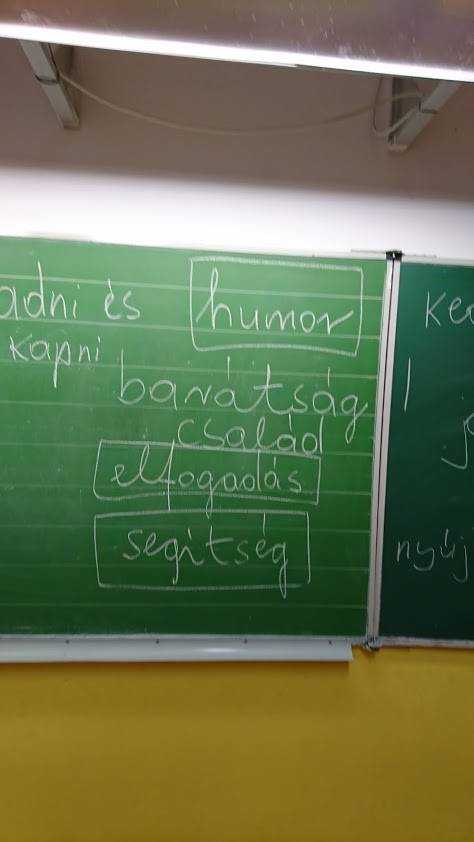 adni és
kapni
humor
barátság
család
elfogadás
segítség